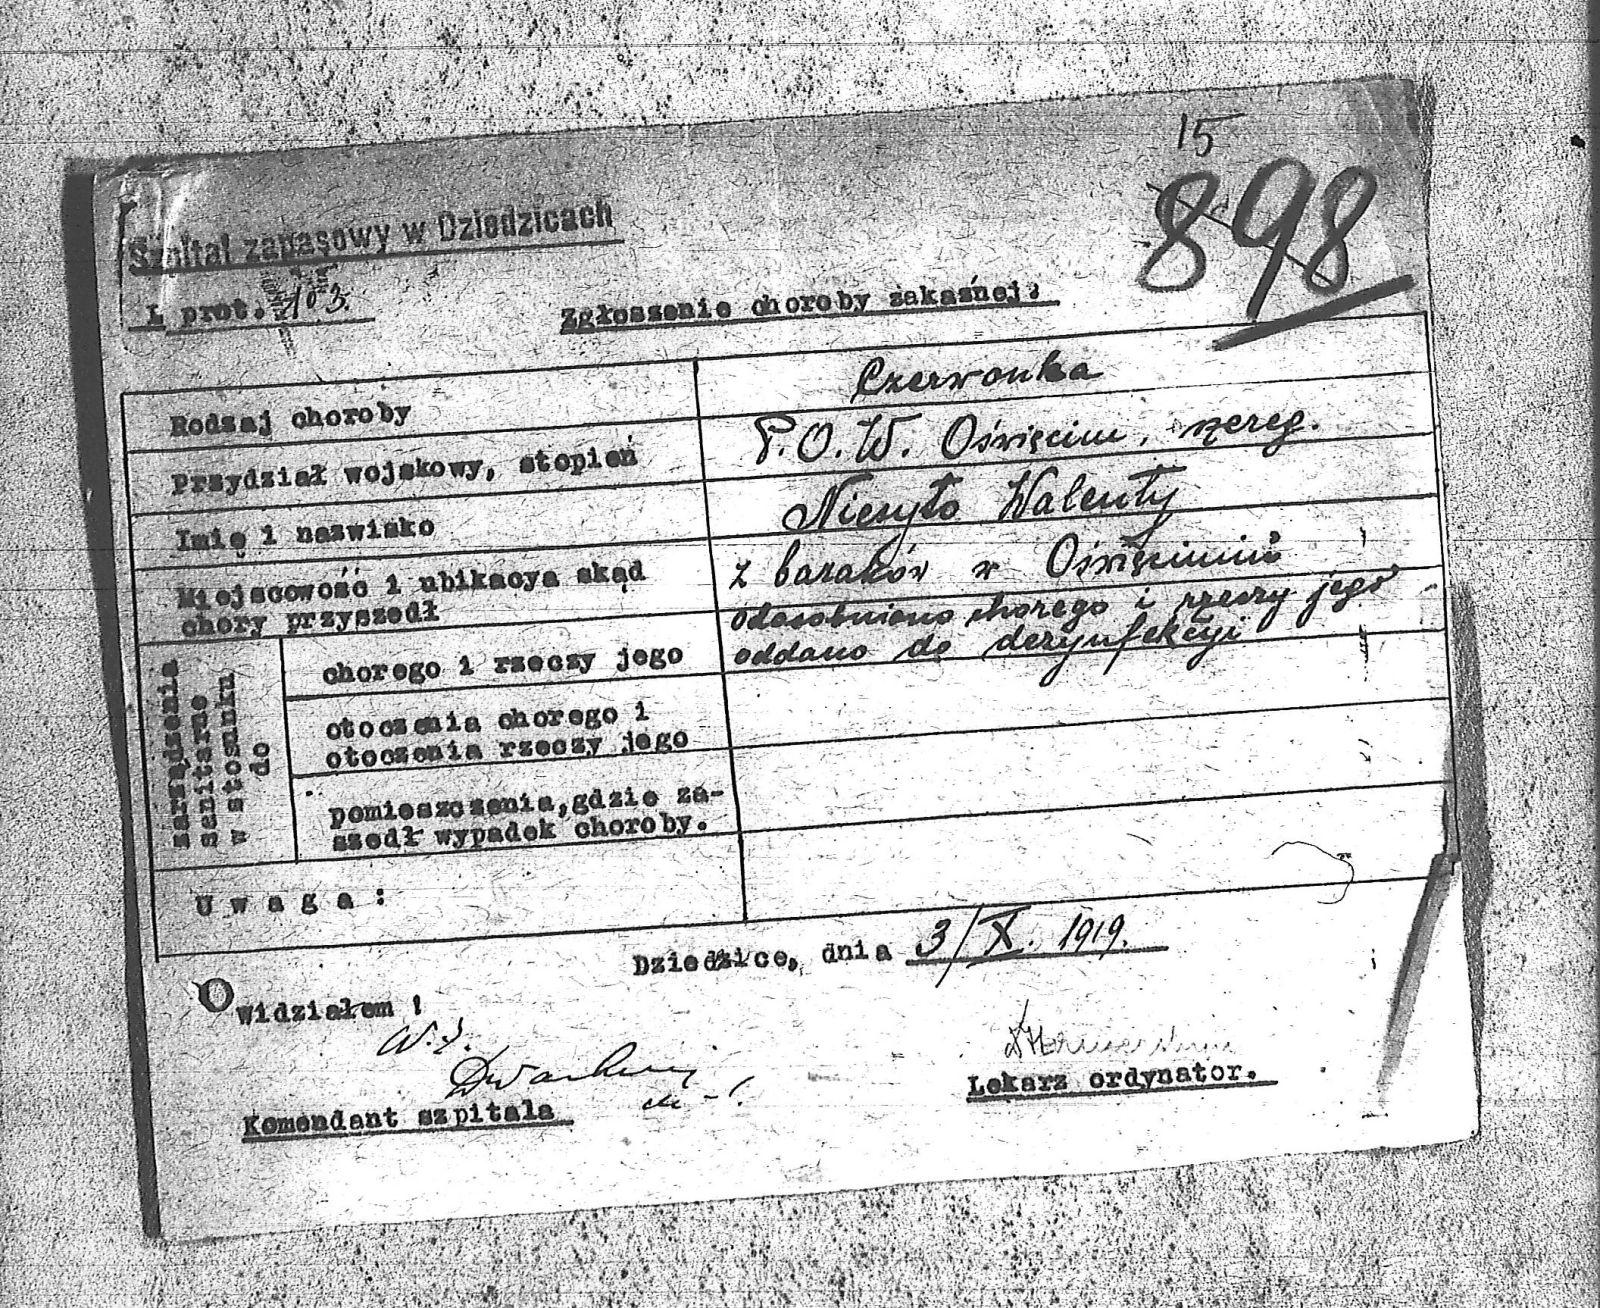 15
898
Szpital zapasowy w Dziedzicach
L prot. 103.
Zgłoszenie choroby zakaźnej.
Rodzaj choroby
Czerwonka
Przydział wojskowy, stopień
P.O.W. Oświęcim, szereg.
Imię i nazwisko
Niesyto Walenty
Miejscowość i ubikacya skąd
chory przyszedł
z baraków w Oświęcimiu
zarządzenia
sanitarne
w stosunku
do
chorego i rzeczy jego
odosobniono chorego i rzeczy jego
oddano do dezynfekcji
otoczenia chorego i
otoczenia rzeczy jego
pomieszczenia, gdzie za-
szedł wypadek choroby.
U w a g a :
Dziedzice, dnia 3/X. 1919.
Widziałem !
Komendant szpitala
Lekarz ordynator.